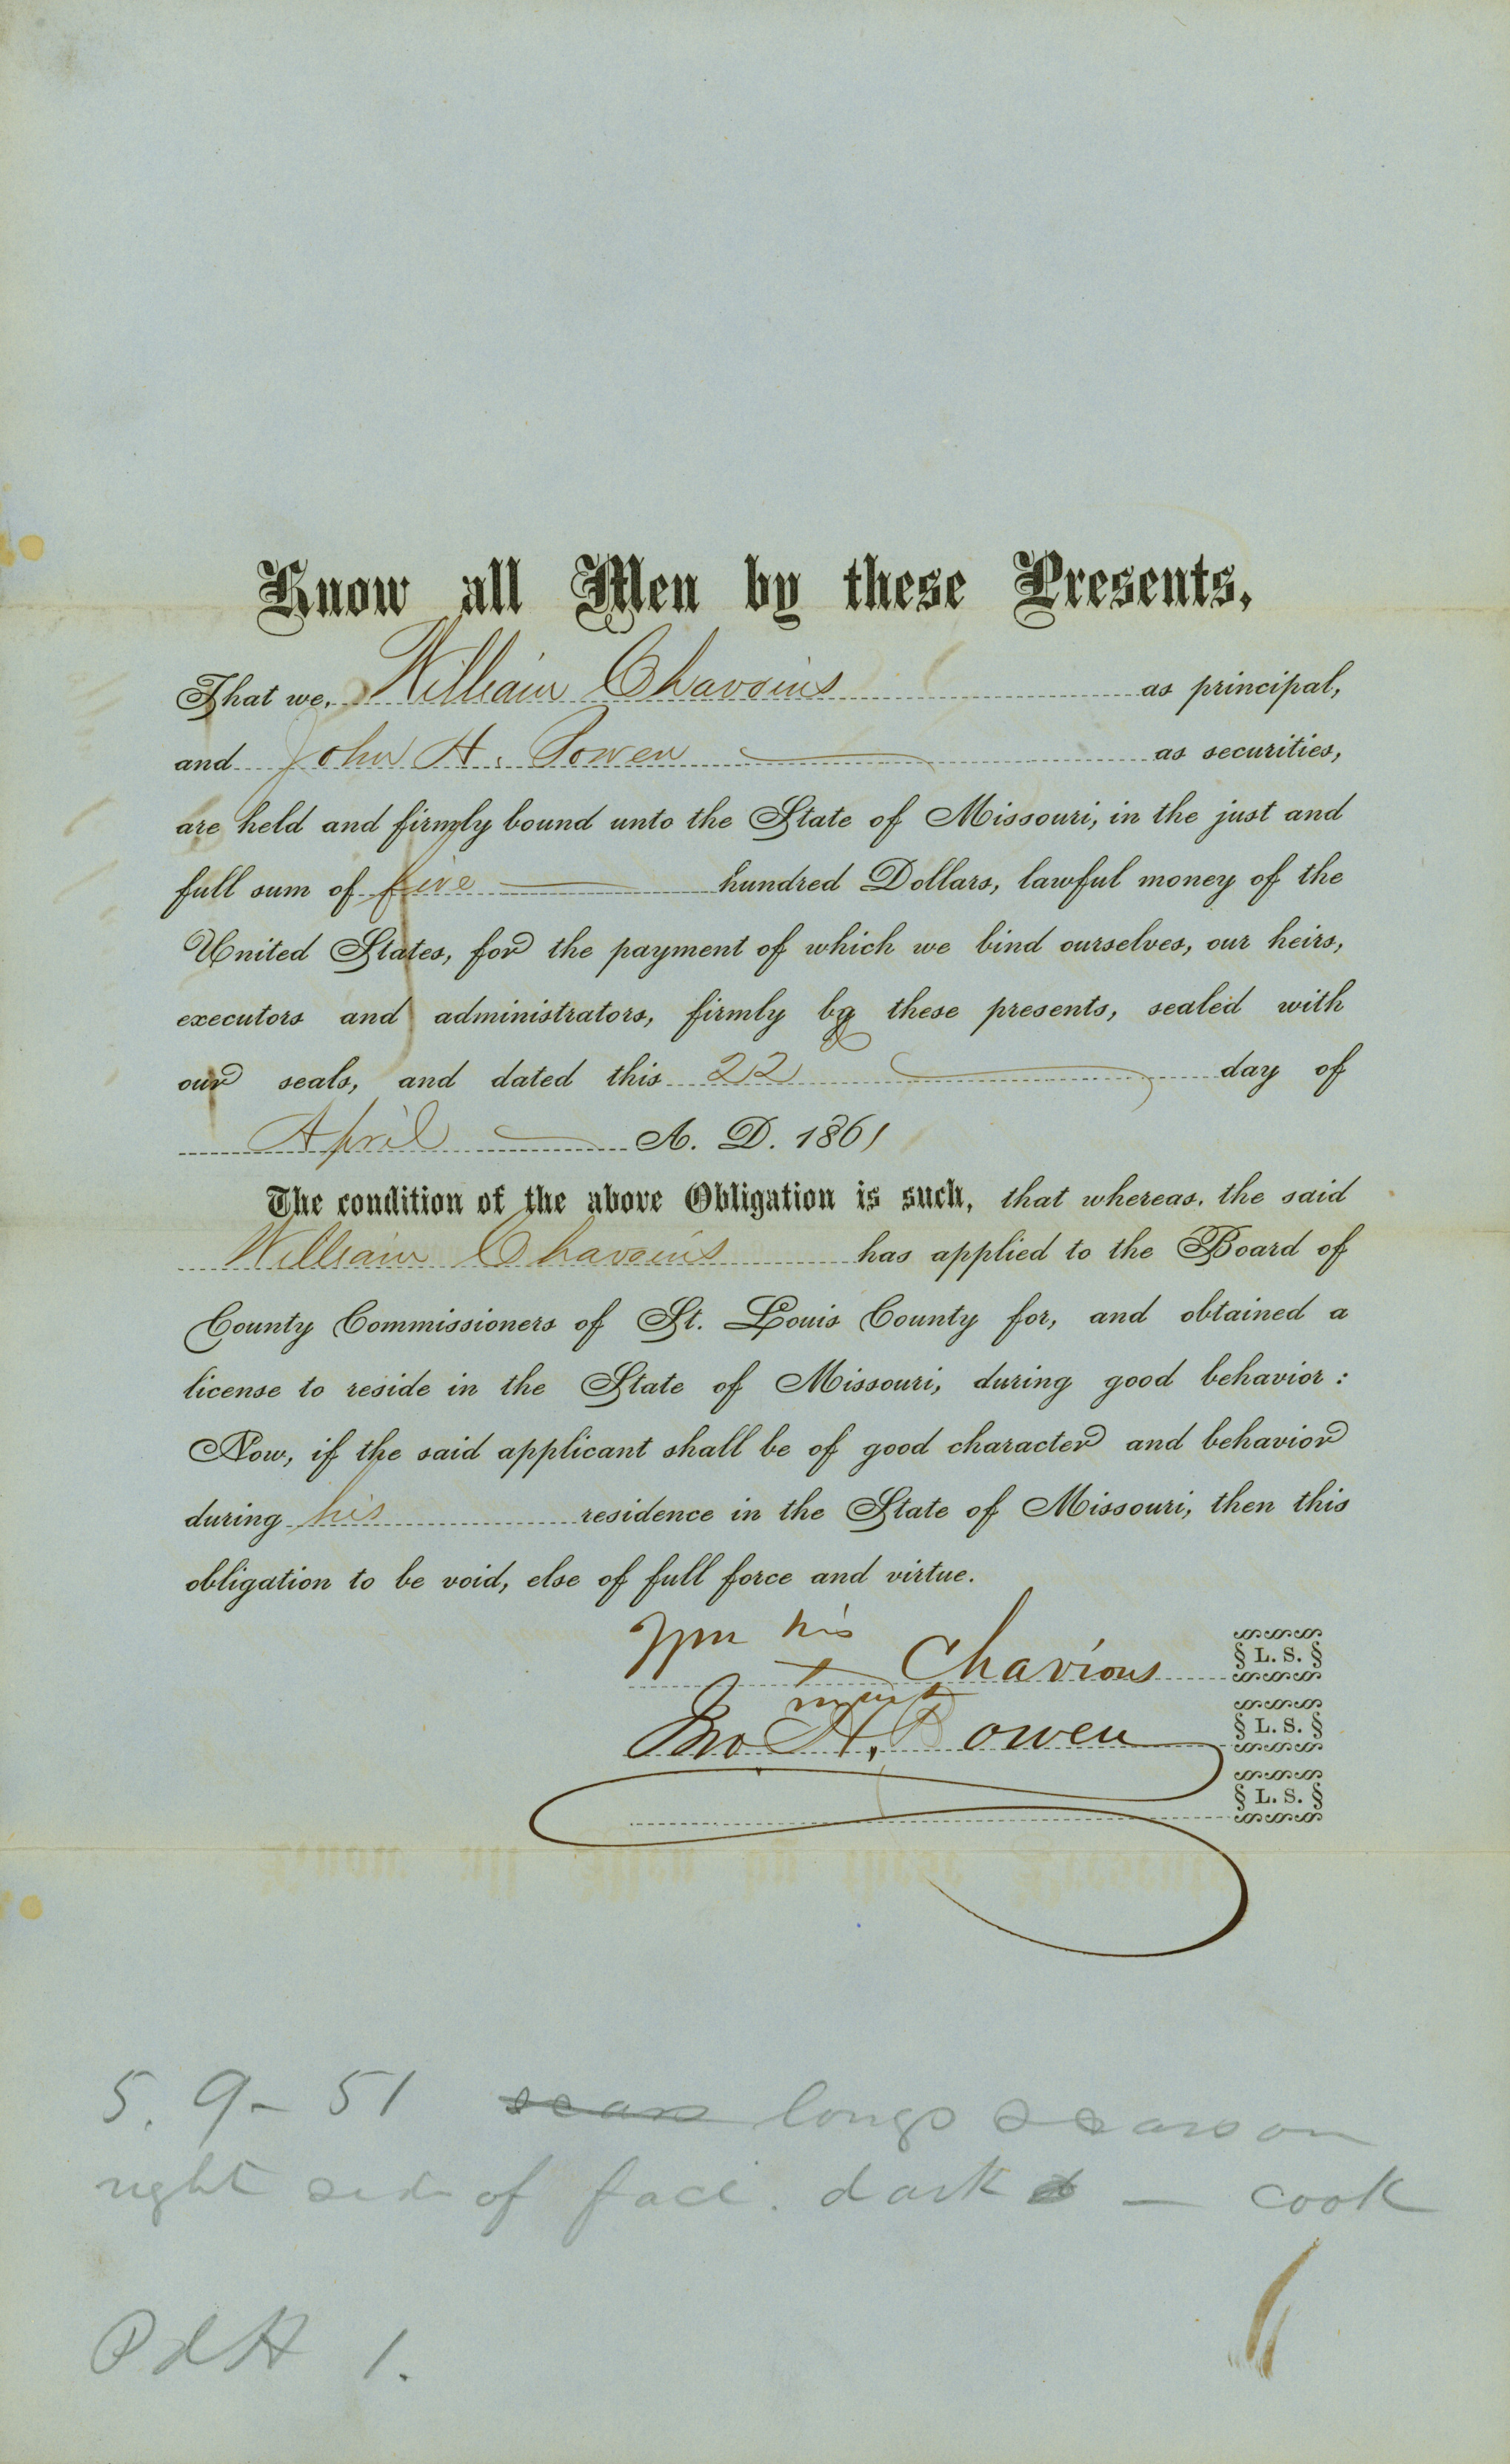 Know all Men by these Presents,
That we, William Chavoius as principal,
and John H. Bowen as securities,
are held and firmly bound unto the State of Missouri, in the just and
full sum of five hundred Dollars, lawful money of the
United States, for the payment of which we bind ourselves, our heirs,
executors and administrators, firmly by these presents, sealed with
our seals, and dated this 22 day of
April A. D. 1861
The condition of the above Obligation is such, that whereas, the said
William Chavoius has applied to the Board of
County Commissioners of St. Louis County for, and obtained a
license to reside in the State of Missouri, during good behavior :
Now, if the said applicant shall be of good character and behavior
during his residence in the State of Missouri, then this
obligation to be void, else of full force and virtue.
Wm his Chavious L. S.
mark
Jno H. Bowen L. S.
L. S.
5. 9 - 51 scars long scars on
right side of face. dark - cook
Pd $ 1.